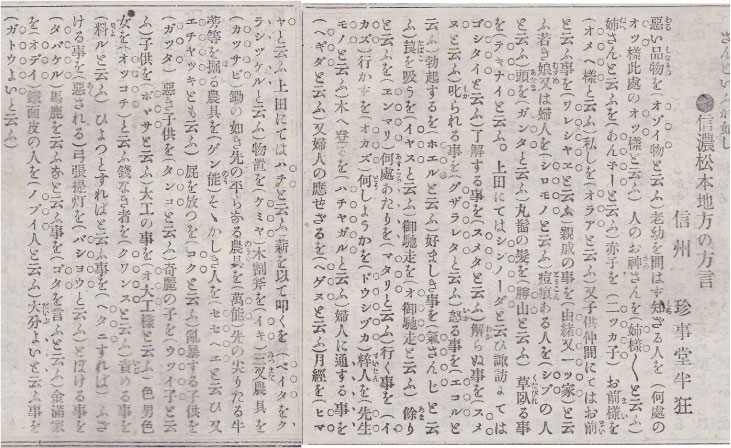 さんといふが如し
●信濃松本地方の方言
信州 珍事堂半狂
惡い品物を(オゾイ物と云ふ)老幼を問はず知ざる人を(何處の
オツ樣此處のオツ樣と云ふ)人のお神さんを(姉樣〱と云ふ)
姉さんと云ふを(あんネーと云ふ)赤子を(ニツカ子)お前樣を
(オメヘ樣と云ふ)私しを(オラアと云ふ)又子供仲間にてはお前
と云ふ事を(ワレシヤエと云ふ)親戚の事を(由緒又一ツ家)と云
ふ若き娘又は婦人を(シロモノと云ふ)痘痕ある人を(シブの人
と云ふ)頭を(ガンタと云ふ)丸髷の髮を(勝山と云ふ)草臥る事
を(ラキナイと云ふ。上田にてはシンノーダと云ひ諏訪よては
ゴシタイと云ふ)了解する事を(スメタと云ふ)解らぬ事を(スメ
ヌと云ふ)叱られる事を(グザラレタと云ふ)怒る事を(エコルと
云ふ)勃起するを(ホエルと云ふ)好ましき事を(氣さんじと云
ふ)莨を吸うを(イヤスと云ふ)御馳走を(オ御馳走と云ふ)餘り
と云ふを(エンマリ)何處あたりを(マタリと云ふ)行く事を(イ
カズ)行か亦を(オカズ)何しようかを(ドウシヅカ)粹人を(先生
モノと云ふ)木へ登を(ハチヤガルと云ふ)婦人に通する事を
(ヘギダと云ふ)又婦人の應せざるを(ヘゲヌと云ふ)月經を(ヒマ
ヤと云ふ上田にてはハチと云ふ)薪を以て叩くを(ベイタをク
ラシヅケルと云ふ)物置を(ケミヤ)木割斧を(イキ)三又農具を
(カツサビ)鋤の如き先の平らある農具を(萬能)先の尖りたる牛
蒡等を掘る農具を(ゲン能)そゝかしき人を(セセヘエと云ひ又
エチヤツキとも云ふ)屁を放つを(コクと云ふ)亂暴する子供を
(ガツタ)惡き子供を(タンコと云ふ)奇麗の子を(ウツイ子と云
ふ)子供を(ボヤサと云ふ)大工の事を(オ大工樣と云ふ)色男色
女を(オツコチ)と云ふ錢なき者を(クワンスと云ふ)責める事を
(料ルと云ふ)ひよつとすればと云ふ事を(ヘタニすれば)ふざ
ける事を(惡される)弓張提灯を(バシヨウと云ふ)とぼける事を
(タバケル)馬鹿を云ふ亦と云ふ事を(ゴタを言ふと云ふ)金滿家
を(オデイ)鐵面皮の人を(ノブイ人と云ふ)大分よいと云ふ事を
(ガトウよいと云ふ)